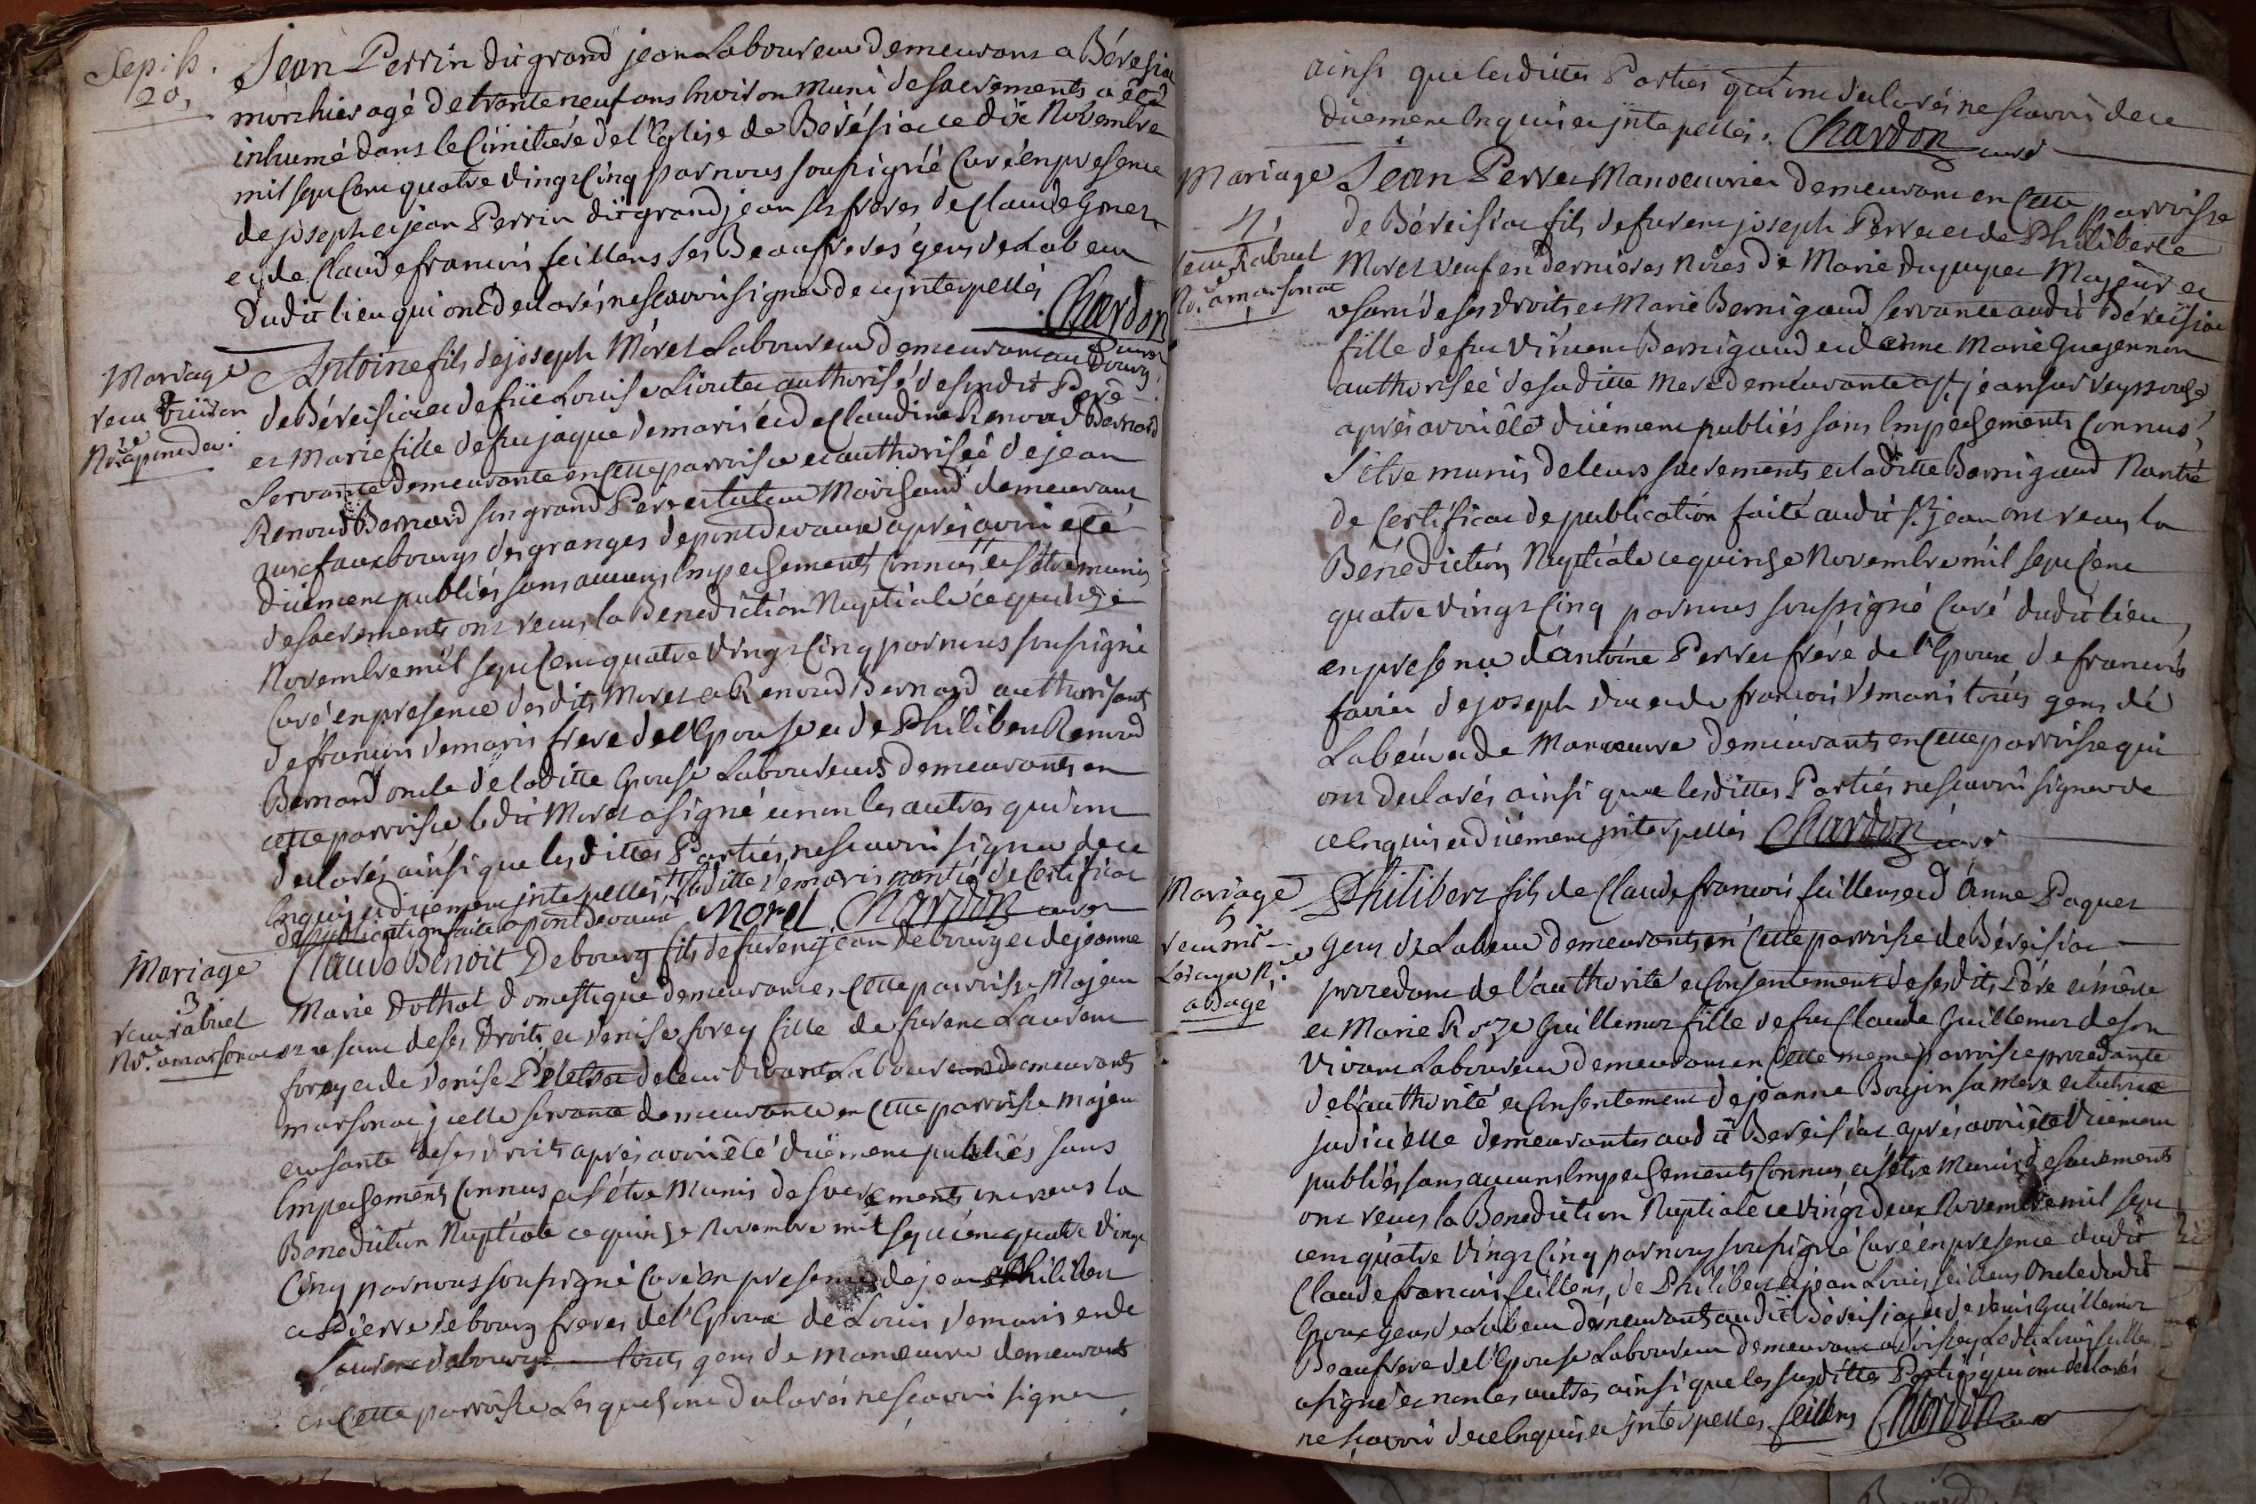 Sep. h.
20,
Jean Perrin dit grand jean Laboureur demeurant a Béresia
morchier agé de trante neuf ans Environ muni de sacrements a été
inhumé dans le Cimitiere de l'Eglise de Bérésia ce dix Novembre
mil sept Cent quatre vingt Cinq par nous soussigné Curé en presence
de joseph et jean Perrin dit grand jean ses freres de Claude
et de Claude francois feillens ses Beaufreres gens de Labeur
dudit lieu qui ont declarés ne scavoir signer de ce jnterpellés
Chardon
curé
Mariage
receu
Nre a pondev.
Antoine fils de joseph Morel Laboureur demeurant au Bourg
de Béreisia et de füe Louise authorisé de sondit Pere
et Marie fille de fu jaque demaris et de Claudine Renoud Bernard
Servante demeurante en Cette parroisse et authorisée de jean
Renoud Bernard son grand Pere et tuteur Marchand demeurant
aux fauxbourgs des granges de pontdevaux aprés avoir été
düement publiés sans aucuns Empechements Connus et s'etre munis
de sacrements ont receus la Benediction Nuptiale ce quinze
Novembre mil sept Cent quatre vingt Cinq par nous soussigné
Curé en presence desdits Morel et Renoud Bernard authorisants
de francois demaris frere de l'Epouse et de Philibert Renoud
Bernard oncle de laditte Epouse Laboureurs demeurants en
cette parroisse ledit Morel a signé et non les autres qui ont
declarés ainsi que lesdittes Parties ne scavoir signer de ce
Enquis et düement jnterpellés laditte demaris nantie de Certificat
de publication faite a pontdevaux Morel Chardon curé
Mariage
3
receu rabuel
Nre a marsonas
Claude Benoit Debourg fils de fu jean debourg et de jeanne
Marie domestique demeurant en Cette parroisse Majeur
et usant de ses Droits et denise forey fille de furent Laurent
forey et de denise de leur vivants Laboureurs demeurants
marsonas jcelle servante demeurante en Cette parroisse majeur
et usante de ses droits aprés avoir êté düement publiés sans
Empechements Connus et s'être Munis de sacrements ont receus la
Benediction Nuptiale ce quinze Novembre mil sept cent quatre vingt
Cinq par nous soussigné Curé en presence de jean Philibert
et Pierre debourg freres de l'Epoux de Louis demaris et de
Laurent debourg touts gens de manoeuvre demeurants
en Cette parroisse Lesquels ont declarés ne scavoir signer
ainsi que lesdittes Parties qui ont declarés ne scavoir de ce
düement Enquis et jnterpellés. Chardon curé
Mariage
4
receu Rabuel
Nre a marsonas
Jean Perret Manoeuvrier demeurant en Cette parroisse
de Béreisia fils de furent joseph Perret et de Philiberte
Morel veuf en dernieres Nôces de Marie Dupupet Majeur et
usant de ses droits et Marie Bernigaud servante audit Béreisia
fille de fu vincent Bernigaud et d'anne Marie Guejennon
authorisée de saditte Mere demeurante a St jean sur Reyssouze
aprés avoir êté düement publiés sans Empechements Connus,
s'être munis de leurs sacrements et laditte Bernigaud Nantie
de Certificat de publication faite audit St jean ont receus la
Bénédiction Nuptiale ce quinze Novembre mil sept Cent
quatre vingt Cinq par nous soussigné Curé dudit lieu
en presence d'antoine Perret frére de l'Epoux de francois
favier de joseph et de francois demaris touts gens de
Labeur et de Manoeuvre demeurants en Cette parroisse qui
ont declarés ainsi que lesdittes Parties ne scavoir signer de
ce Enquis et düement jnterpellés Chardon curé
Mariage
5
receu mr
Lesage Nre
a Bagé
Philibert fils de Claude francois feillens et d'anne Paquet
gens de Labeur demeurants en Cette parroisse de Béreisia
procedant de l'authorité et Consentement de sesdits Pére et mére
et Marie Roze Guillemot fille de fu Claude Guillemot de son
vivant Laboureur demeurant en Cette meme parroisse procedante
de l'authorité et Consentement de jeanne Borjon sa mere et tutrice
judicielle demeurantes audit Bereisiat aprés avoir été düement
publiés sans aucuns Empechements Connus et s'être Munis de sacrements
ont receus la Benediction Nuptiale ce vingt deux Novembre mil sept
cent quatre vingt Cinq par nous soussigné Curé en presence dudit
Claude francois feillens, de Philibert et jean Louis feillens Oncle dudit
Epoux gens de Labeur demeurants audit Béreisia et de denis Guillemot
Beaufrere de l'Epouse Laboureur demeurant a ledit Louis feillens
a signé et non les autres ainsi que les susdittes Parties qui ont declarés
ne scavoir de ce Enquis et jnterpellés feillens Chardon curé